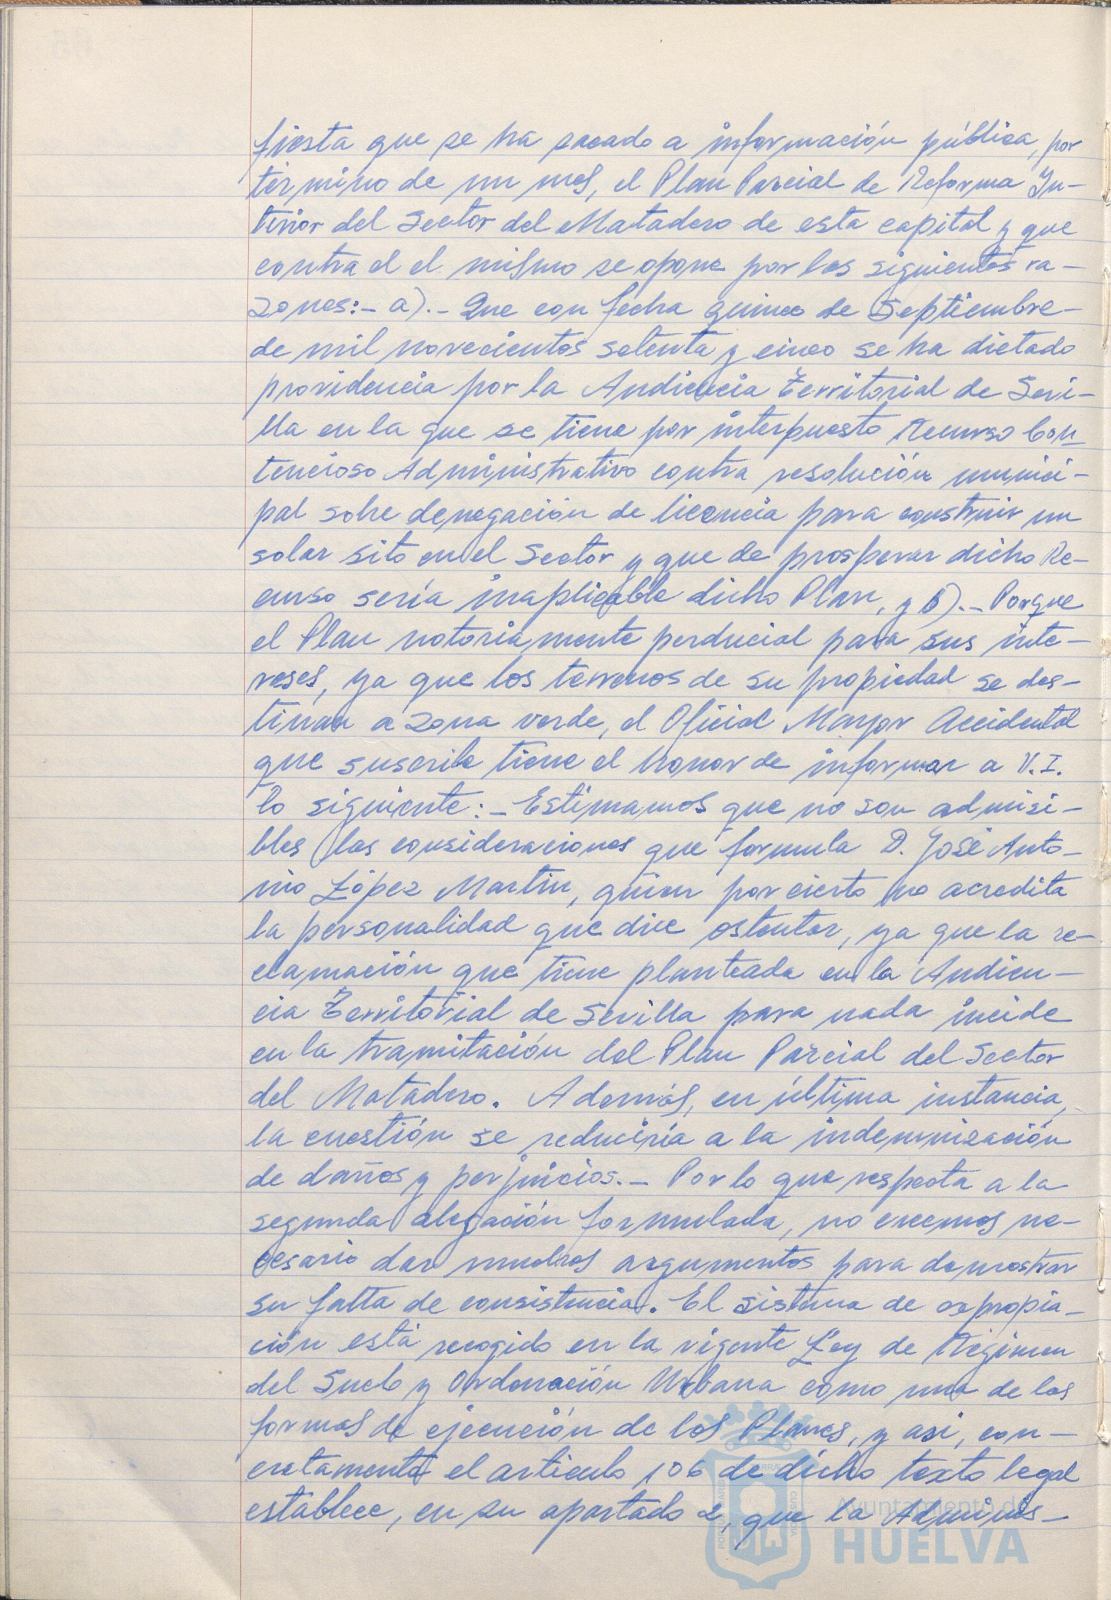 fiesta que se ha sacado a información pública, por
término de un mes, el Plan Parcial de Reforma In-
terior del Sector del Matadero de esta capital y que
contra el el mismo se opone por las siguientes ra-
zones:- a).- Que con fecha quince de Septiembre-
de mil novecientos setenta y cinco se ha dictado
providencia por la Audiencia Territorial de Sevi-
lla en la que se tiene por interpuesto Recurso Con-
tencioso Administrativo contra resolución munici-
pal sobre denegación de licencia para construir un
solar sito en el Sector y que de prosperar dicho Re-
curso sería inaplicable dicho Plan, y b).- Porque
el Plan notoriamente perducial para sus inte-
reses, ya que los terrenos de su propiedad se des-
tinan a zona verde, el Oficial Mayor Accidental
que suscribe tiene el honor de informar a V.I.
lo siguiente:- Estimamos que no son admisi-
bles las consideraciones que formula D. José Anto-
nio López Martin, quien por cierto no acredita
la personalidad que dice ostentar, ya que la re-
clamación que tiene planteada en la Audien-
cia Territorial de Sevilla para nada incide
en la tramitación del Plan Parcial del Sector
del Matadero. Además, en última instancia,
la cuestión se reduciría a la indemnización
de daños y perjuicios.- Por lo que respecta a la
segunda alegación formulada, no creemos ne-
cesario dar muchos argumentos para demostrar
su falta de consistencia. El sistema de expropia-
ción está recogido en la vigente Ley de Régimen
del Suelo y Ordenación Urbana como una de las
formas de ejecución de los Planes, y asi, con-
cretamente el articulo 106 de dicho texto legal
establece, en su apartado 2, que la Adminis-
Ayuntamiento de
HUELVA